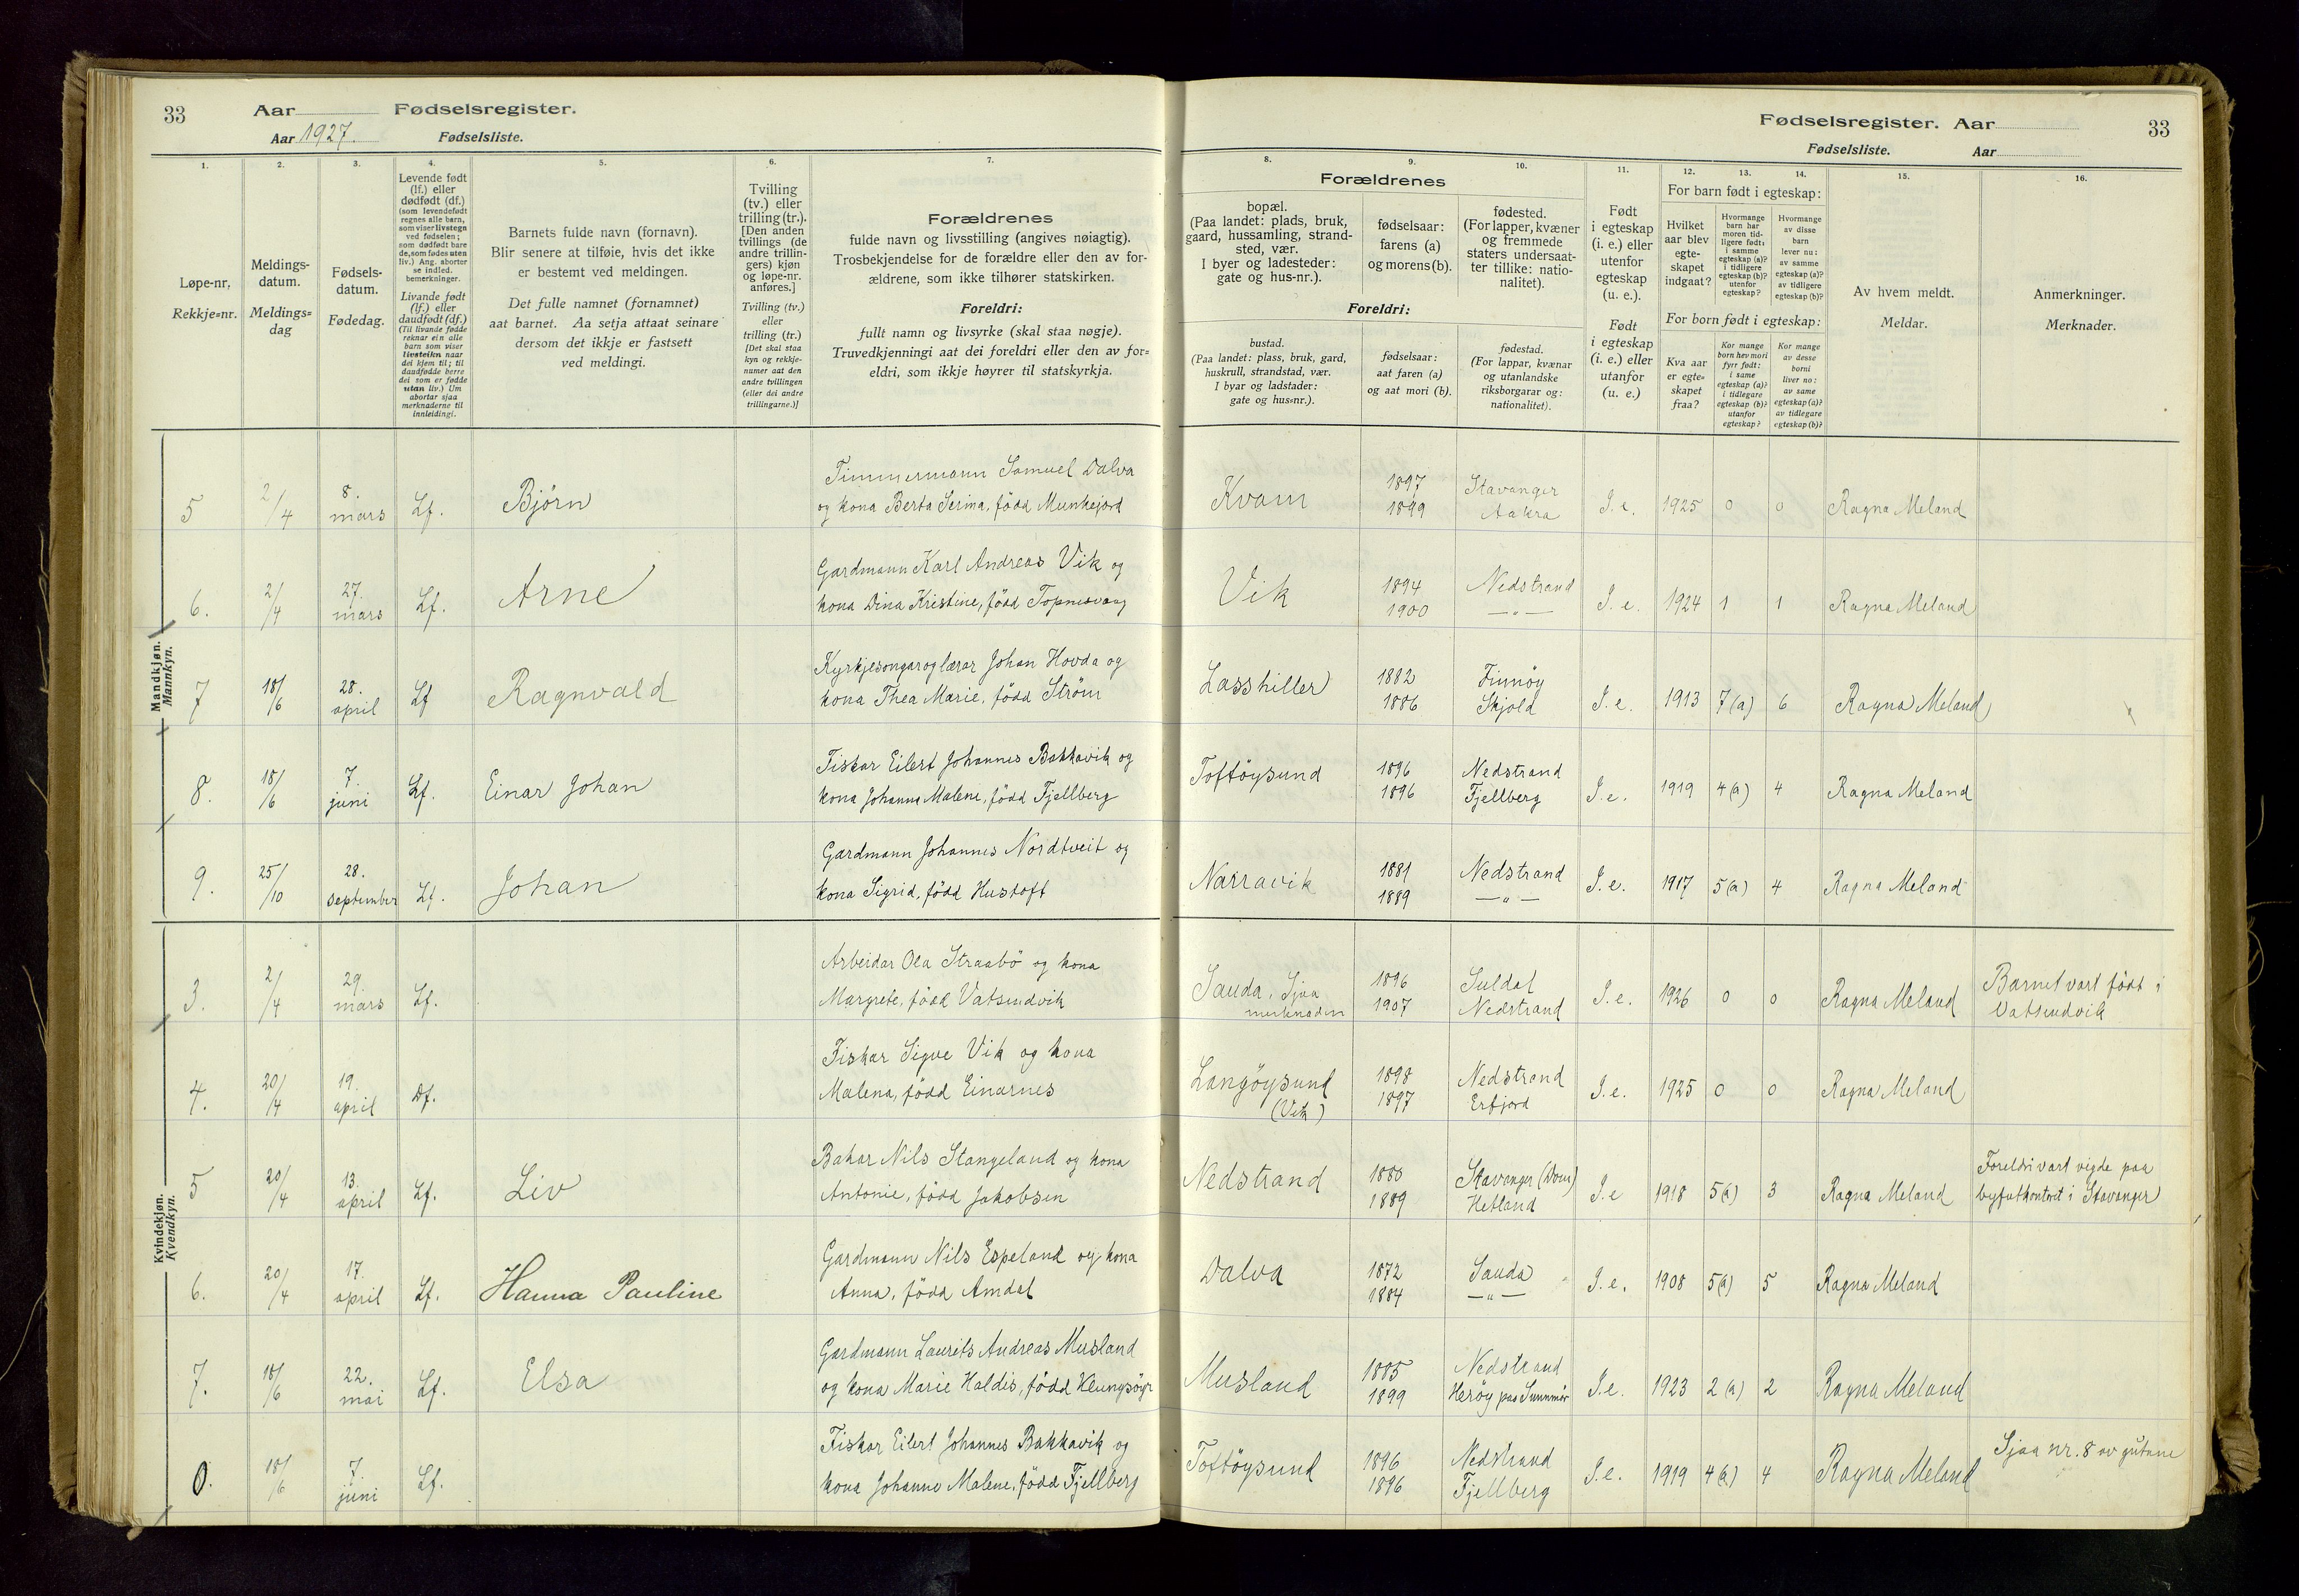 33 Aar Fødselsregister.
Aar 1927. Fødselsliste.
Fødselsregister. Aar 33
Fødselsliste. Aar
1. 2. 3. 4. 5. 6. 7.
8. 9. 10. 11. 12. 13. 14. 15. 16.
Løpe-nr.
Rekkje=nr.
Meldings-
datum.
Meldings=
dag
Fødsels-
datum.
Fødedag.
Levende født
(lf.) eller
dødfødt (df.)
(som levendefødt
regnes alle barn,
som viser livstegn
ved fødselen;
som dødfødt bare
de, som fødes uten
liv.) Ang. aborter
se indled.
bemerkninger.
Livande født
(lf.) eller
daudfødt (df.)
(Til livande fødde
reknar ein alle
barn som viser
livsteikn naar
dei kjem til; til
daudfødde berre
dei som er fødde
utan liv.) Um
abortar sjaa
merknaderne til
innleidingi.
Barnets fulde navn (fornavn).
Blir senere at tilføie, hvis det ikke
er bestemt ved meldingen.
Det fulle namnet (fornamnet)
aat barnet. Aa setja attaat seinare
dersom det ikkje er fastsett
ved meldingi.
Tvilling
(tv.) eller
trilling (tr.).
[Den anden
tvillings (de
andre trillin-
gers) kjøn
og løpe-nr.
anføres.]
Tvilling (tv.)
eller
trilling (tr.)
[Det skal staa
kyn og rekkje-
numer aat den
andre tvillingen
(eller dei andre
trillingarne.)]
Forældrenes
fulde navn og livsstilling (angives nøiagtig).
Trosbekjendelse for de forældre eller den av for-
ældrene, som ikke tilhører statskirken.
Foreldri:
fullt namn og livsyrke (skal staa nøgje).
Truvedkjenningi aat dei foreldri eller den av for=
eldri, som ikkje høyrer til statskyrkja.
Forældrenes
bopæl.
(Paa landet: plads, bruk,
gaard, hussamling, strand-
sted, vær.
I byer og ladesteder:
gate og hus-nr.).
fødselsaar:
farens (a)
og morens (b).
fødested.
(For lapper, kvæner
og fremmede
staters undersaat-
ter tillike: natio-
nalitet).
Foreldri:
bustad.
(Paa landet: plass, bruk, gard,
huskrull, strandstad, vær.
I byar og ladstader:
gate og hus=nr.).
fødselsaar:
aat faren (a)
og aat mori (b).
fødestad.
(For lappar, kvænar
og utanlandske
riksborgarar og:
nationalitet).
Født
i egteskap
(i. e.) eller
utenfor
egteskap
(u. e.).
Født
i egteskap
(i. e.) eller
utanfor
(u. e.)
For barn født i egteskap:
Hvilket
aar blev
egte-
skapet
indgaat?
Hvormange
barn har
moren tid-
ligere født:
i samme
egteskap (a)?
i tidligere
egteskap (b)?
utenfor
egteskap?
Hvormange
av disse
barn
lever nu:
av samme
egteskap (a)?
av tidligere
egteskap (b)?
For born født i egteskap:
Kva aar
er egte=
skapet
fraa?
Kor mange
born hev mori
fyrr født:
i same
egteskap (a)?
i tidlegare
egteskap (b)?
utanfor
egteskap?
Kor mange
av desse
borni
liver no:
av same
egteskap (a)?
av tidlegare
egteskap (b)?
Av hvem meldt.
Meldar.
Anmerkninger.
Merknader.
Mandkjøn.
Mannkyn.
5 2/4 8. mars Lf. Bjørn
Timmermann Samuel Dalva
og kona Berta Serina, född Munkejord
Kvam 1897 1899 Stavanger Aakra I. e. 1925 0 0 Ragna Meland
6. 2/4 27. mars Lf. Arne
Gardmann Karl Andreas Vik og
kona Dina Kristine, född Topnesvaag
Vik 1894 1900 Nedstrand —"— I. e. 1924 1 1 Ragna Meland
7 18/6 28. april Lf Ragnvald
Kyrkjesongar og lærar Johan Hovda og
kona Thea Marie, född Ström
Lasshiller 1882 1886 Finnöy Skjold I. e. 1913 7 (a) 6 Ragna Meland
8. 18/6 7. juni Lf. Einar Johan
Fiskar Eilert Johannes Bakkavik og
kona Johanna Malene, född Fjellberg
Toftöysund 1896 1896 Nedstrand Fjellberg I. e. 1919 4 (a) 4 Ragna Meland
9. 25/10 28. september Lf. Johan
Gardmann Johannes Nordtveit og
kona Sigrid, född Hustoft
Narravik 1881 1889 Nedstrand —"— I. e. 1917 5 (a) 4 Ragna Meland
Kvindekjøn.
Kvendkyn.
3. 2/4 29. mars Lf.
Arbeidar Ola Straabö og kona
Margrete, född Vatsendvik
Sauda, Sjaa merknaden 1896 1907 Suldal Nedstrand I. e. 1926 0 0 Ragna Meland Barnet vart födt i
Vatsendvik
4. 20/4 19. april Df.
Fiskar Sigve Vik og kona
Malena, född Einarnes
Langöysund (Vik) 1898 1897 Nedstrand Erfjord I. e. 1925 0 0 Ragna Meland
5 20/4 13. april Lf. Liv
Bakar Nils Stangeland og kona
Antonie, född Jakobsen
Nedstrand 1880 1889 Stavanger (Dom) Hetland I. e 1918 5 (a) 3 Ragna Meland Foreldri vart vigde paa
byfutkontoret i Stavanger
6. 20/4 17. april Lf. Hanna Pauline
Gardmann Nils Espeland og kona
Anna, född Amdal
Dalva 1872 1884 Sauda —"— I. e. 1908 5 (a) 5 Ragna Meland
7. 18/6 22. mai Lf. Elsa
Gardmann Laurits Andreas Musland
og kona Marie Haldis, född Klungsöyr
Musland 1885 1899 Nedstrand Heröy paa Sunnmör I. e. 1923 2 (a) 2 Ragna Meland
0. 18/6 7. juni Lf.
Fiskar Eilert Johannes Bakkavik og
kona Johanne Malene, född Fjellberg
Toftöysund 1896 1896 Nedstrand Fjellberg I. e. 1919 4 (a) 4 Ragna Meland Sjaa nr. 8 av gutane